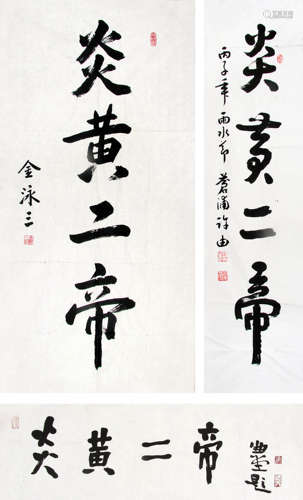 炎黄二帝
丙子年雨水节
许由
炎黄二帝
金泳三
炎黄二帝
题